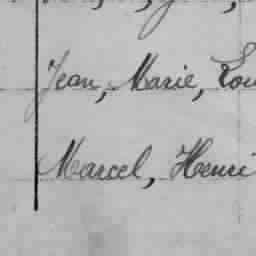 Jean, Marie, Lou
Marcel, Henri